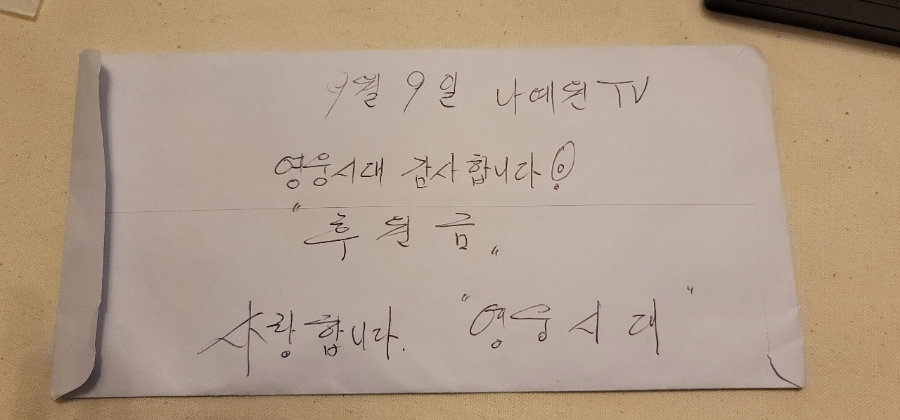 9월 9일 나예원 TV
영웅시대 감사합니다!
"후원금"
사랑합니다. "영웅시대"